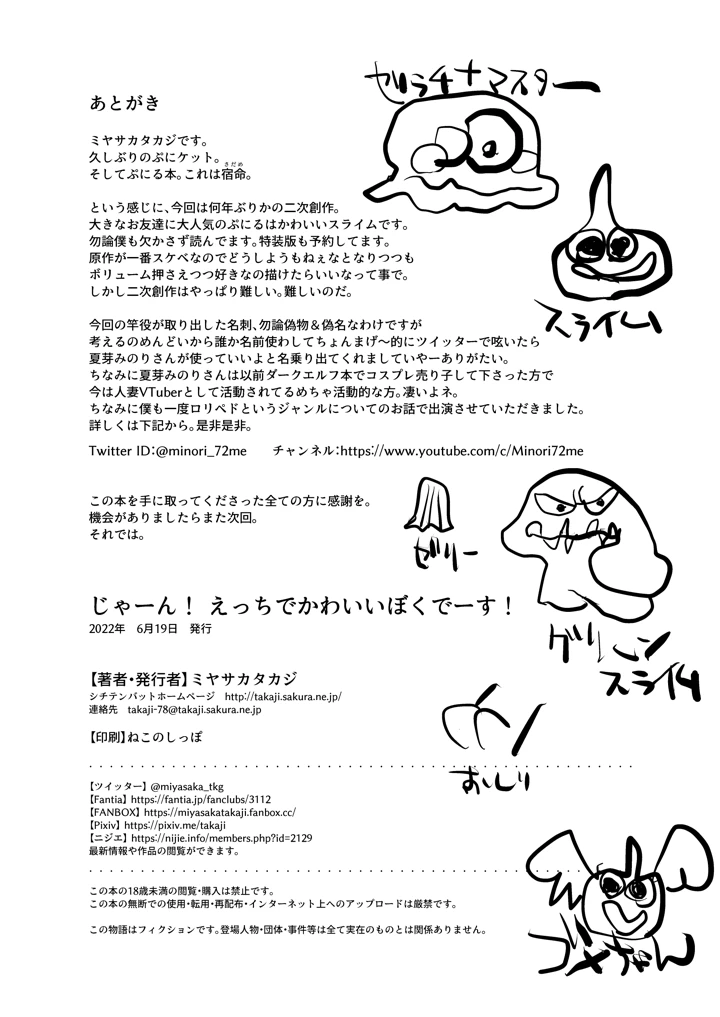 あとがき
ミヤサカタカジです。
久しぶりのぷにケット。
そしてぷにる本。これは宿命。
さだめ
という感じに、今回は何年ぶりかの二次創作。
大きなお友達に大人気のぷにるはかわいいスライムです。
勿論僕も欠かさず読んでます。特装版も予約してます。
原作が一番スケベなのでどうしようもねぇなとなりつつも
ボリューム押さえつつ好きなの描けたらいいなって事で。
しかし二次創作はやっぱり難しい。難しいのだ。
今回の竿役が取り出した名刺、勿論偽物&偽名なわけですが
考えるのめんどいから誰か名前使わしてちょんまげ〜的にツイッターで呟いたら
夏芽みのりさんが使っていいよと名乗り出てくれましていやーありがたい。
ちなみに夏芽みのりさんは以前ダークエルフ本でコスプレ売り子して下さった方で
今は人妻VTuberとして活動されてるめちゃ活動的な方。凄いよネ。
ちなみに僕も一度ロリペドというジャンルについてのお話で出演させていただきました。
詳しくは下記から。是非是非。
Twitter ID:@minori_72me　チャンネル:https://www.youtube.com/c/Minori72me
この本を手に取ってくださった全ての方に感謝を。
機会がありましたらまた次回。
それでは。
じゃーん！ えっちでかわいいぼくでーす！
2022年　6月19日　発行
【著者・発行者】ミヤサカタカジ
シチテンバットホームページ　http://takaji.sakura.ne.jp/
連絡先　takaji-78@takaji.sakura.ne.jp
【印刷】ねこのしっぽ
【ツイッター】 @miyasaka_tkg
【Fantia】 https://fantia.jp/fanclubs/3112
【FANBOX】 https://miyasakatakaji.fanbox.cc/
【Pixiv】 https://pixiv.me/takaji
【ニジエ】 https://nijie.info/members.php?id=2129
最新情報や作品の閲覧ができます。
この本の18歳未満の閲覧・購入は禁止です。
この本の無断での使用・転用・再配布・インターネット上へのアップロードは厳禁です。
この物語はフィクションです。登場人物・団体・事件等は全て実在のものとは関係ありません。
ゼラチナマスター
スライム
ゼリー
グリハン
スライム
おしり
ブメちゃん